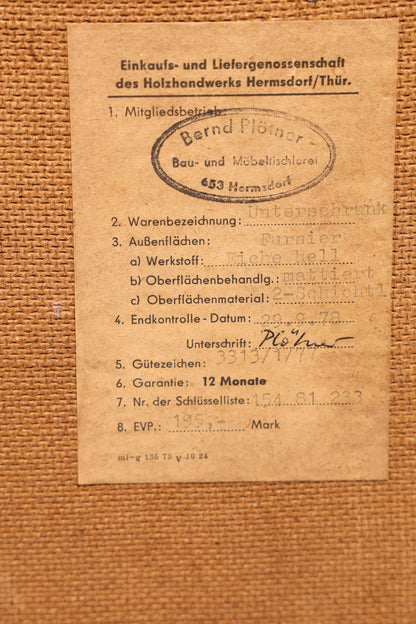 Einkaufs- und Liefergenossenschaft
des Holzhandwerks Hermsdorf/Thür.
1. Mitgliedsbetrieb:
Bernd Plötner
Bau- und Möbeltischlerei
653 Hermsdorf
2. Warenbezeichnung: Unterschrank
3. Außenflächen: Furnier
a) Werkstoff: Eiche hell
b) Oberflächenbehandlg.: mattiert
c) Oberflächenmaterial: 2-Schichtl
4. Endkontrolle - Datum: 20.9.78
Unterschrift: Plötner
5. Gütezeichen:
6. Garantie: 12 Monate
7. Nr. der Schlüsselliste: 154 81 223
8. EVP.: 195,- Mark
mi-g 136 73 V 10 24